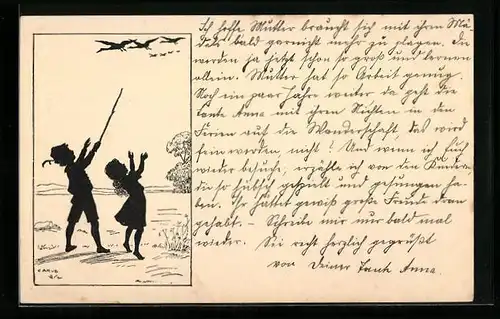 Ich hoffe Mutter braucht sich mit ihren Mä-
dels bald garnicht mehr zu plagen. Die
werden ja jetzt schon so groß und lernen
allein. Mutter hat so Arbeit genug.
Noch ein paar Jahre weiter da geht die
Tante Anna mit ihren Nichten in den
Ferien auf die Wanderschaft, das wird
fein werden nicht! Und wenn ich Euch
wieder besuche, erzähle ich von den Kindern
die so hübsch gespielt und gesungen ha-
ben. Ihr hättet gewiß große Freude dran
gehabt. – Schreibe mir nur bald mal
wieder. Sei recht herzlich gegrüßt
von Deiner Tante Anna.